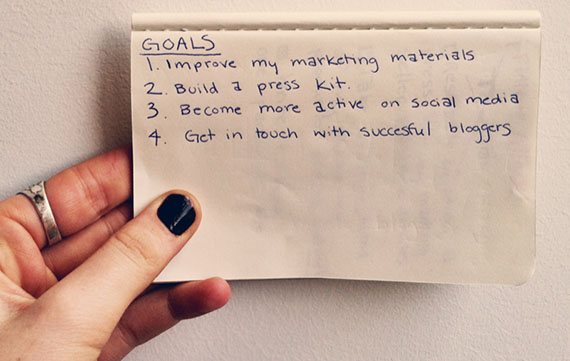 GOALS
1. Improve my marketing materials
2. Build a press kit.
3. Become more active on social media
4. Get in touch with succesful bloggers